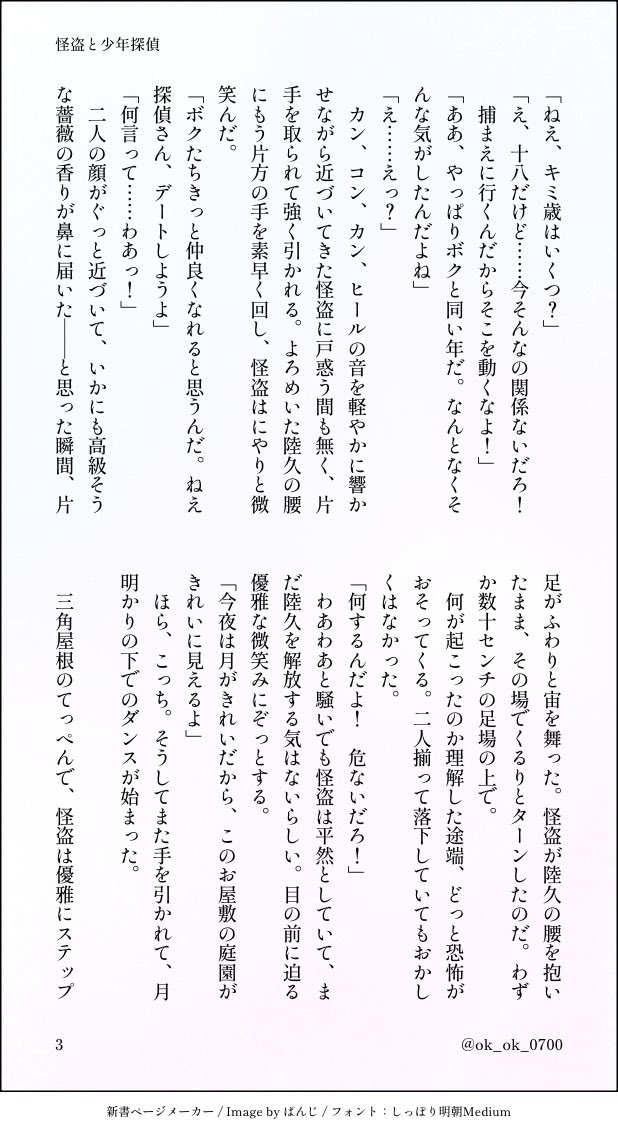 怪盗と少年探偵
「ねえ、キミ歳はいくつ？」
「え、十八だけど……今そんなの関係ないだろ！
　捕まえに行くんだからそこを動くなよ！」
「ああ、やっぱりボクと同い年だ。なんとなくそ
んな気がしたんだよね」
「え……えっ？」
　カン、コン、カン、ヒールの音を軽やかに響か
せながら近づいてきた怪盗に戸惑う間も無く、片
手を取られて強く引かれる。よろめいた陸久の腰
にもう片方の手を素早く回し、怪盗はにやりと微
笑んだ。
「ボクたちきっと仲良くなれると思うんだ。ねえ
探偵さん、デートしようよ」
「何言って……わあっ！」
　二人の顔がぐっと近づいて、いかにも高級そう
な薔薇の香りが鼻に届いた――と思った瞬間、片
足がふわりと宙を舞った。怪盗が陸久の腰を抱い
たまま、その場でくるりとターンしたのだ。わず
か数十センチの足場の上で。
　何が起こったのか理解した途端、どっと恐怖が
おそってくる。二人揃って落下していてもおかし
くはなかった。
「何するんだよ！　危ないだろ！」
　わあわあと騒いでも怪盗は平然としていて、ま
だ陸久を解放する気はないらしい。目の前に迫る
優雅な微笑みにぞっとする。
「今夜は月がきれいだから、このお屋敷の庭園が
きれいに見えるよ」
　ほら、こっち。そうしてまた手を引かれて、月
明かりの下でのダンスが始まった。
　三角屋根のてっぺんで、怪盗は優雅にステップ
3
@ok_ok_0700
新書ページメーカー / Image by ばんじ / フォント：しっぽり明朝Medium